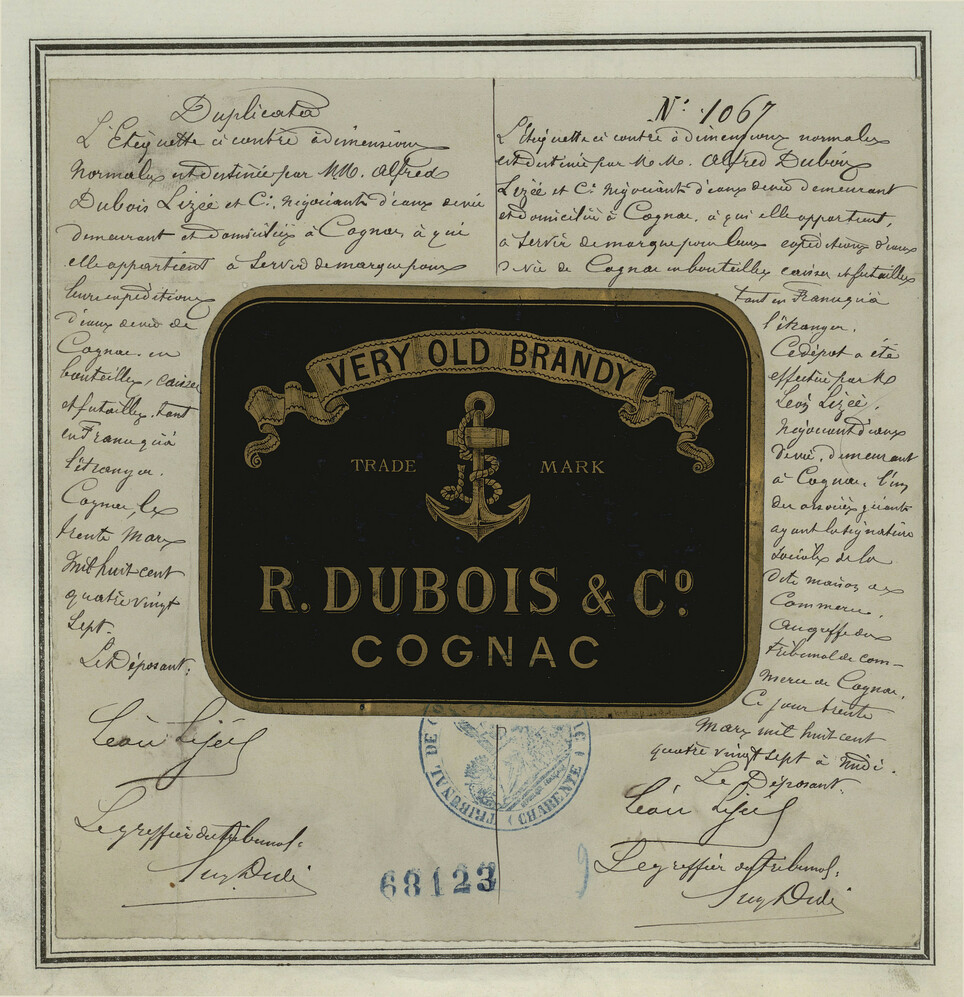 Duplicata
L'Etiquette ci contre à dimensions
Normales est destinée par MM. Alfred
Dubois Lizée et Cie, négociants d'eaux de vie
demeurant et domiciliés à Cognac, à qui
elle appartient à servir de marque pour
leurs expéditions
d'eaux de vie de
Cognac en
bouteilles, caisses
et futailles, tant
en France qu'à
l'étranger.
Cognac, le
trente Mars
Mil huit cent
quatre vingt
Sept.
Le Déposant:
Léon Lizée
Le greffier du tribunal:
N° 1067
L'Etiquette ci contre à dimensions normales
est destinée par M.M. Alfred Dubois
Lizée et Cie négociants d'eaux de vie demeurant
et domiciliés à Cognac, à qui elle appartient,
à servir de marque pour leurs expéditions d'eaux
de vie de Cognac en bouteilles caisses et futailles
tant en France qu'à
l'étranger.
Ce dépôt a été
effectué par M
Léon Lizée,
négociant d'eaux
de vie, demeurant
à Cognac, l'un
des associés gérants
ayant la signature
sociale de la
dite maison de
Commerce.
Au greffe du
tribunal de com-
merce de Cognac,
Ce jour trente
Mars mil huit cent
quatre vingt sept à midi.
Le Déposant:
Léon Lizée
Le greffier du tribunal:
VERY OLD BRANDY
TRADE MARK
R. DUBOIS & Cº
COGNAC
TRIBUNAL DE
(CHARENTE)
68123